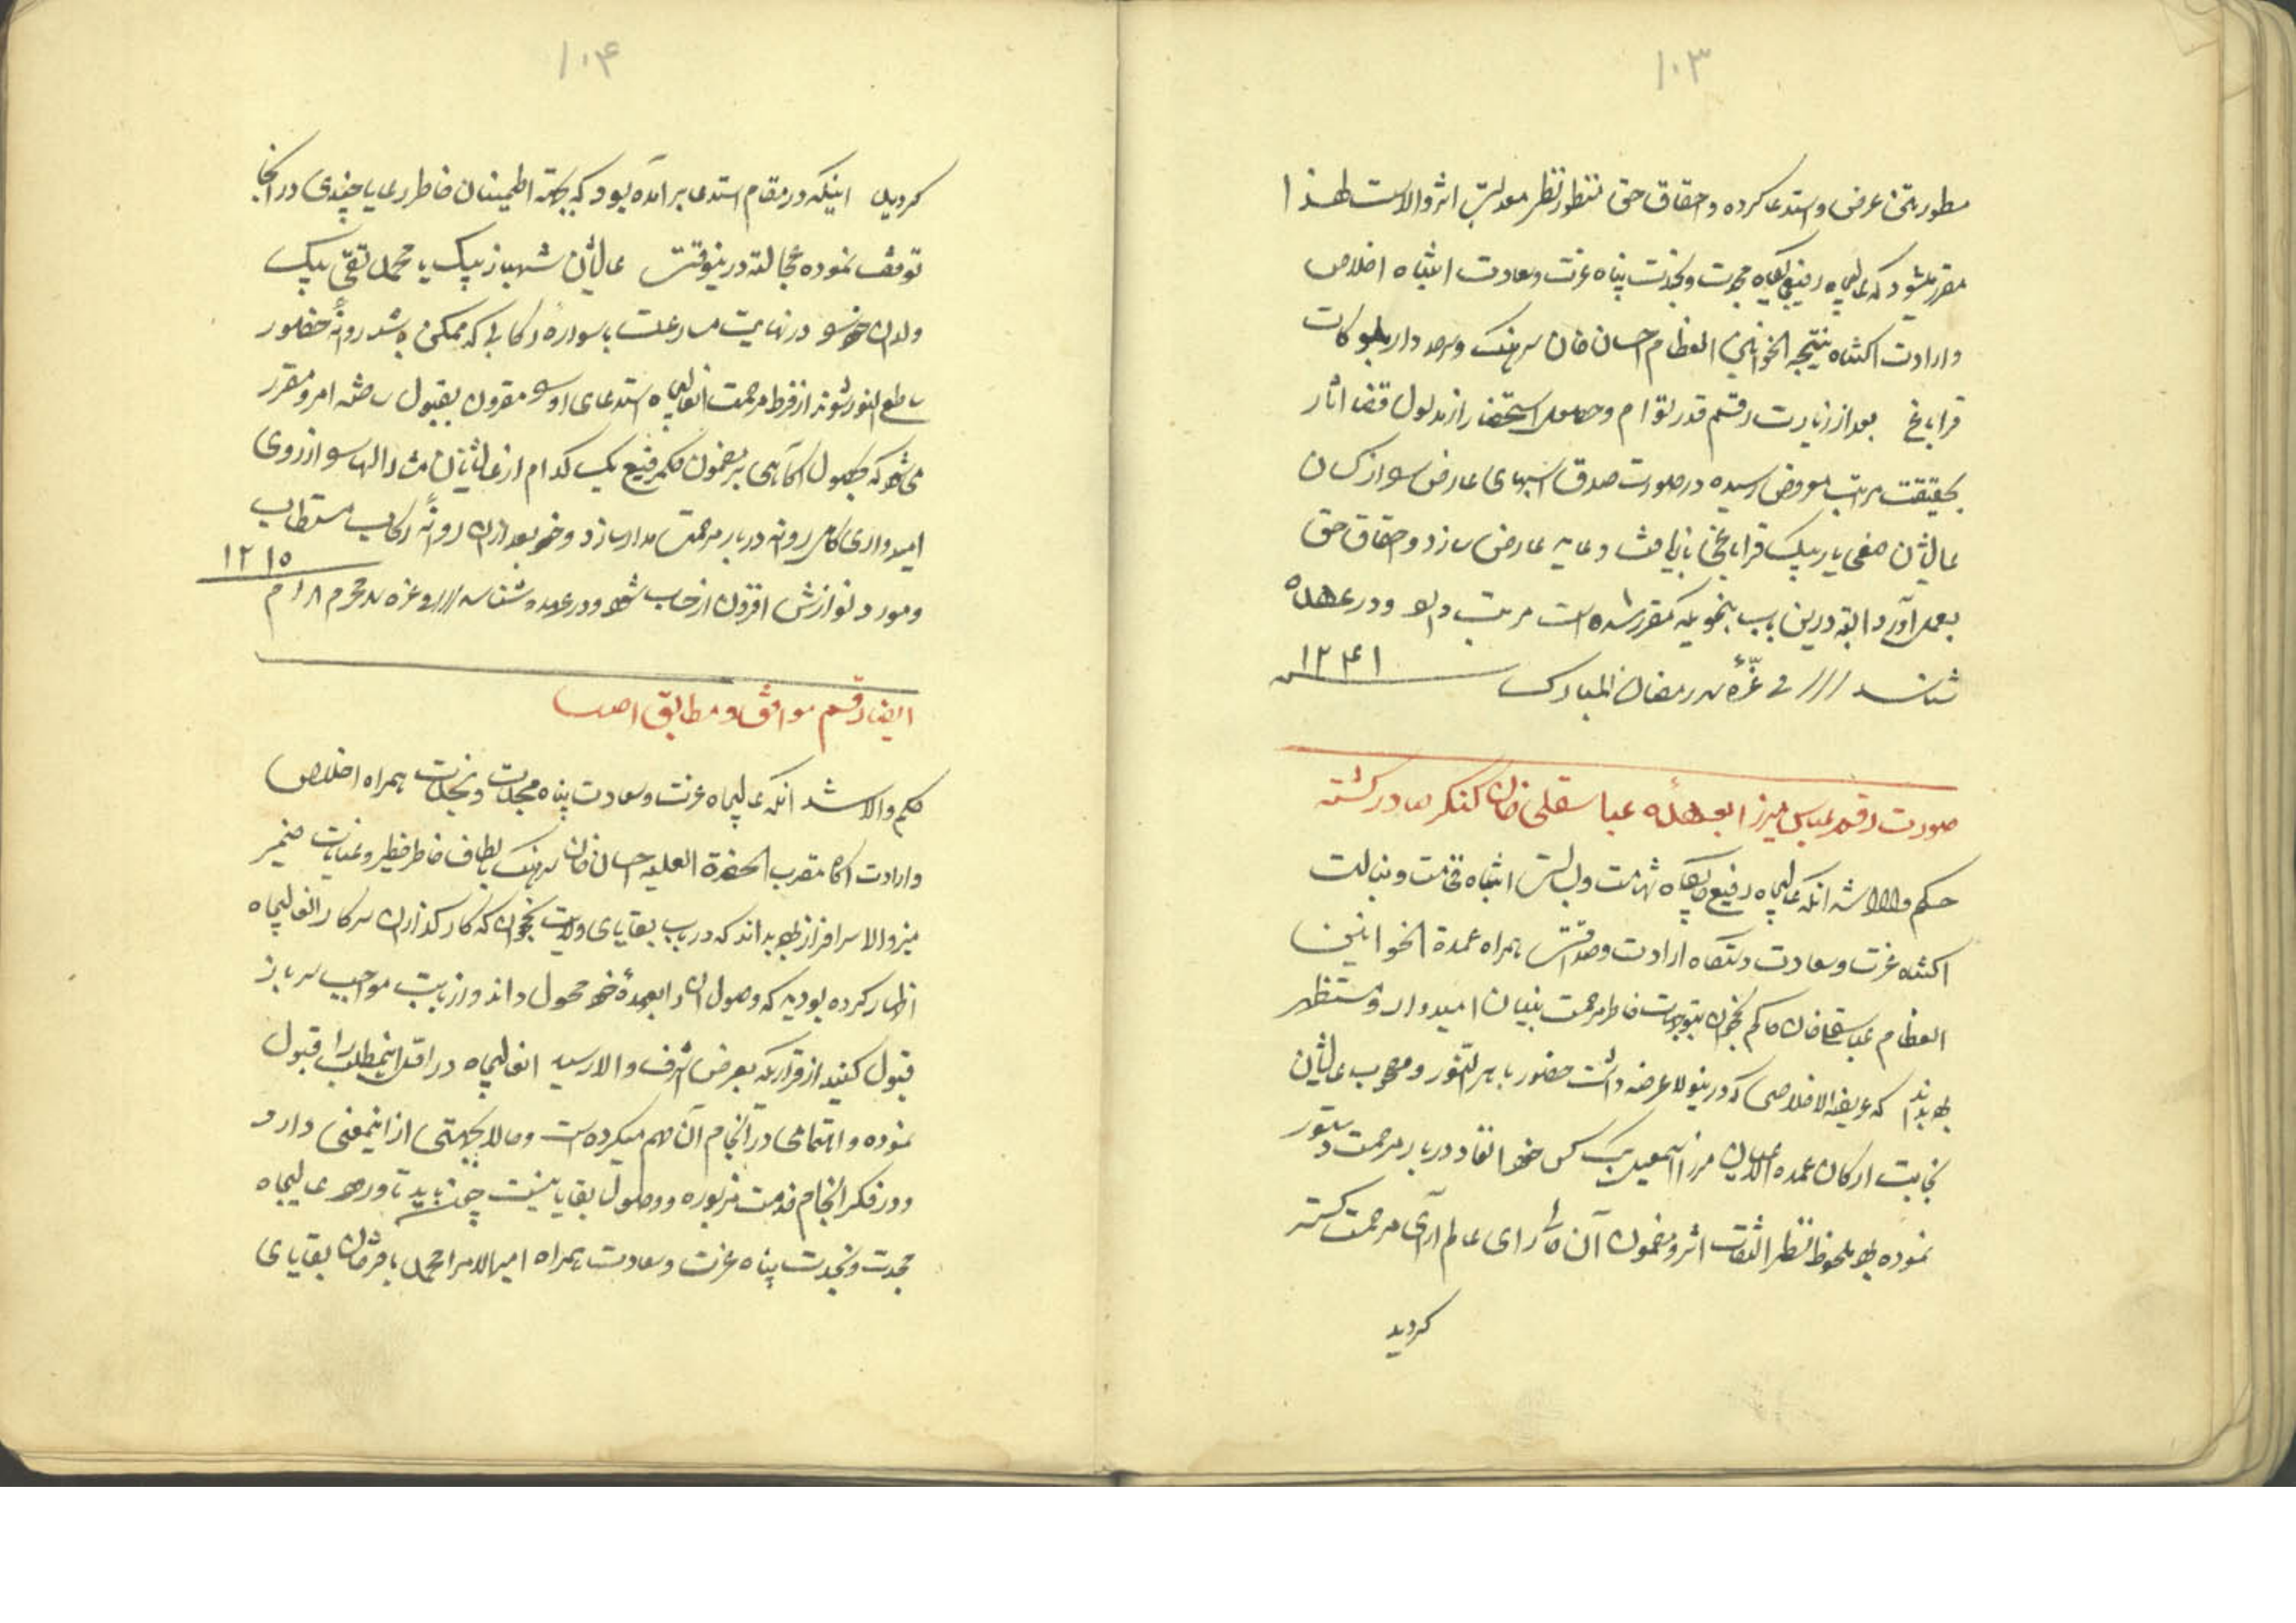 ۱۰۳
مسطور بتحتی عرض و استدعا کرده و احقاق حق منظور نظر معدلت اثر والاست لهذا
مقرر میشود که عالیجاه رفیع جایگاه مجدت و نجدت پناه عزت و سعادت انتباه اخلاص
و ارادت اکتناه نتیجه الخوانین العظام احسان خان سرهنگ و سرحددار بلوکات
قراباغ بعد از زیارت رقم قدر توام و حصول استحضار از مدلول قضا آثار
بحقیقت مراتب معروض رسیده در صورت صدق اسبهای عارض را از کسان
عالیشان صفی یار بیک قراباغی بازیافت و عاید عارض سازد و احقاق حق
بعمل آورد البته درین باب بنحویکه مقرر شده است مرتب دارد و در عهده
شناسند /// فی غره شهر رمضان المبارک ۱۲۴۱
صورت رقم عباس میرزا بعهده عباسقلی خان کنگر صادر گشته
حکم والا شد آنکه عالیجاه رفیع جایگاه شهامت و بسالت انتباه فخامت و نبالت
اکتناه عزت و سعادت دستگاه ارادت و صداقت همراه عمدة الخوانین
العظام عباسقلی خان حاکم نخجوان بتوجهات خاطر مرحمت بنیان امیدوار و مستظهر
بوده بداند که عریضه الاخلاصی که درینولا عرضه داشت حضور باهر النور و مصحوب عالیشان
نجابت ارکان عمده الاعیان میرزا اسمعیل بیک کس خود انفاد دربار مرحمت دستور
نموده بود ملحوظ نظر التفات اثر و مضمون آن حالی رای عالم آرای مرحمت گستر
گردید
۱۰۴
گردید اینکه در مقام استدعا برآمده بود که بجهته اطمینان خاطر رعایا چندی در آنجا
توقف نموده عجالة درینوقت عالیشان شهباز بیک یا محمد تقی بیک
ولدان خود را در نهایت مسارعت با سواره رکابی که ممکن باشد روانه حضور
ساطع النور شوند از فرط مرحمت آنعالیجاه استدعای او را مقرون بقبول ساخته امر و مقرر
می شود که بحصول آگاهی بر مضمون حکم رفیع یک کدام از عالیشانان مشارالیهما را از روی
امیدواری کامل روانه دربار مرحمت مدار سازد و خود بعد از آن روانه رکاب مستطاب
و مورد نوازش افزون از حساب شود و در عهده شناسد /// فی غره شهر محرم الحرام ۱۲۱۵
ایضا رقم موافق و مطابق اصل
حکم والا شد آنکه عالیجاه عزت و سعادت پناه مجدت و نجدت همراه اخلاص
و ارادت آگاه مقرب الحضرة العلیه احسان خان سرهنگ بالطاف خاطر خطیر و عنایات ضمیر
منیر والا سرافراز بوده بداند که در باب بقایای ولایت نخجوان که کارگذاران سرکار آنعالیجاه
اظهار کرده بودند که وصول آن را بعهده خود محمول داند و از بابت مواجب سرباز
قبول کنید از قراریکه بعرض اشرف والا رسید آنعالیجاه در اقل اینمطلب را قبول
نموده و اهتمامی در انجام آن مهم میکرده است و حالا بجهتی از اینمعنی دارد
و در فکر انجام خدمت مزبوره و وصول بقایا نیست چون باید تا ورود عالیجاه
مجدت و نجدت پناه عزت و سعادت همراه امیر الامرا محمد باقر خان بقایای